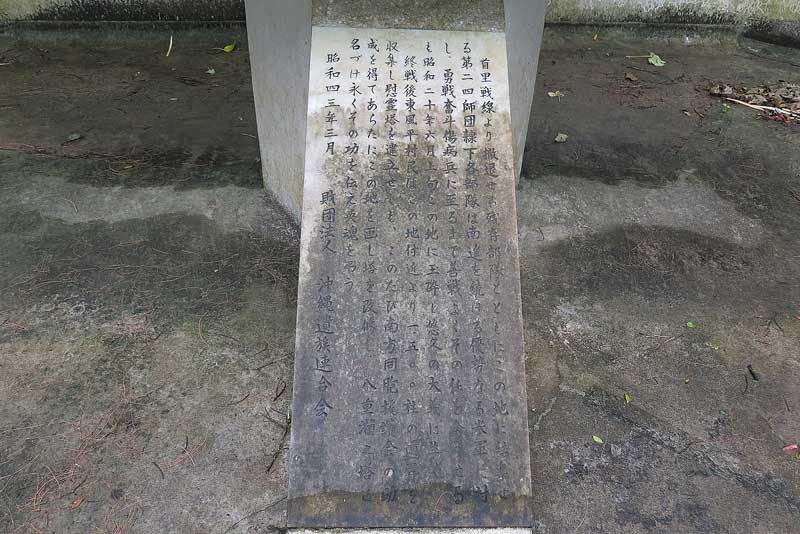 首里戦線より撤退せる残存部隊とともにこの地に
る第二四師団隷下各部隊は南進を続ける優勢なる米軍に対
し勇戦奮斗傷病兵に至るまで善戦よくその任を
も昭和二十年六月上旬この地に玉砕し悠久の大義に
終戦後東風平村民はこの地付近より一五〇〇柱の遺骨を
収集し慰霊塔を建立せ も このたび南方同胞援護会の助
成を得てあらたにこの地を画し塔を改修し 八重瀬之塔と
名づけ永くその功を伝え英魂を弔う
昭和四三年三月 財団法人 沖縄遺族連合会